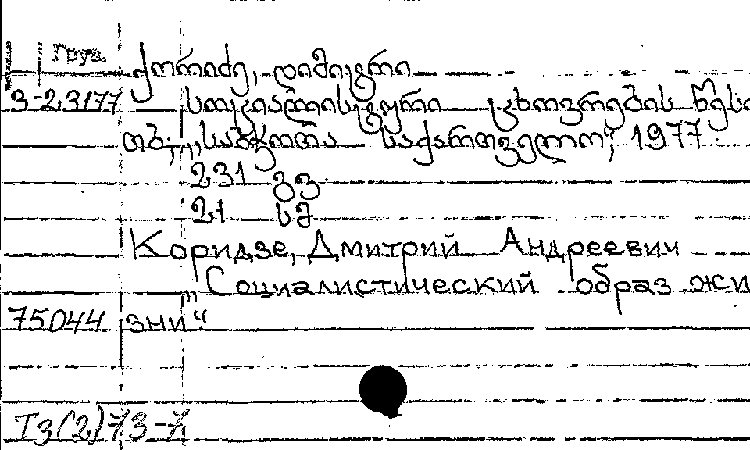 Груз.
ქორიძე, დიმიტრი
3-23177 სოციალისტური ცხოვრების წესი
თბ., „საბჭოთა საქართველო", 1977
231 გვ
21 სმ
Коридзе, Дмитрий Андреевич
„Социалистический образ жи
75044 зни"
Тз(2)73-7